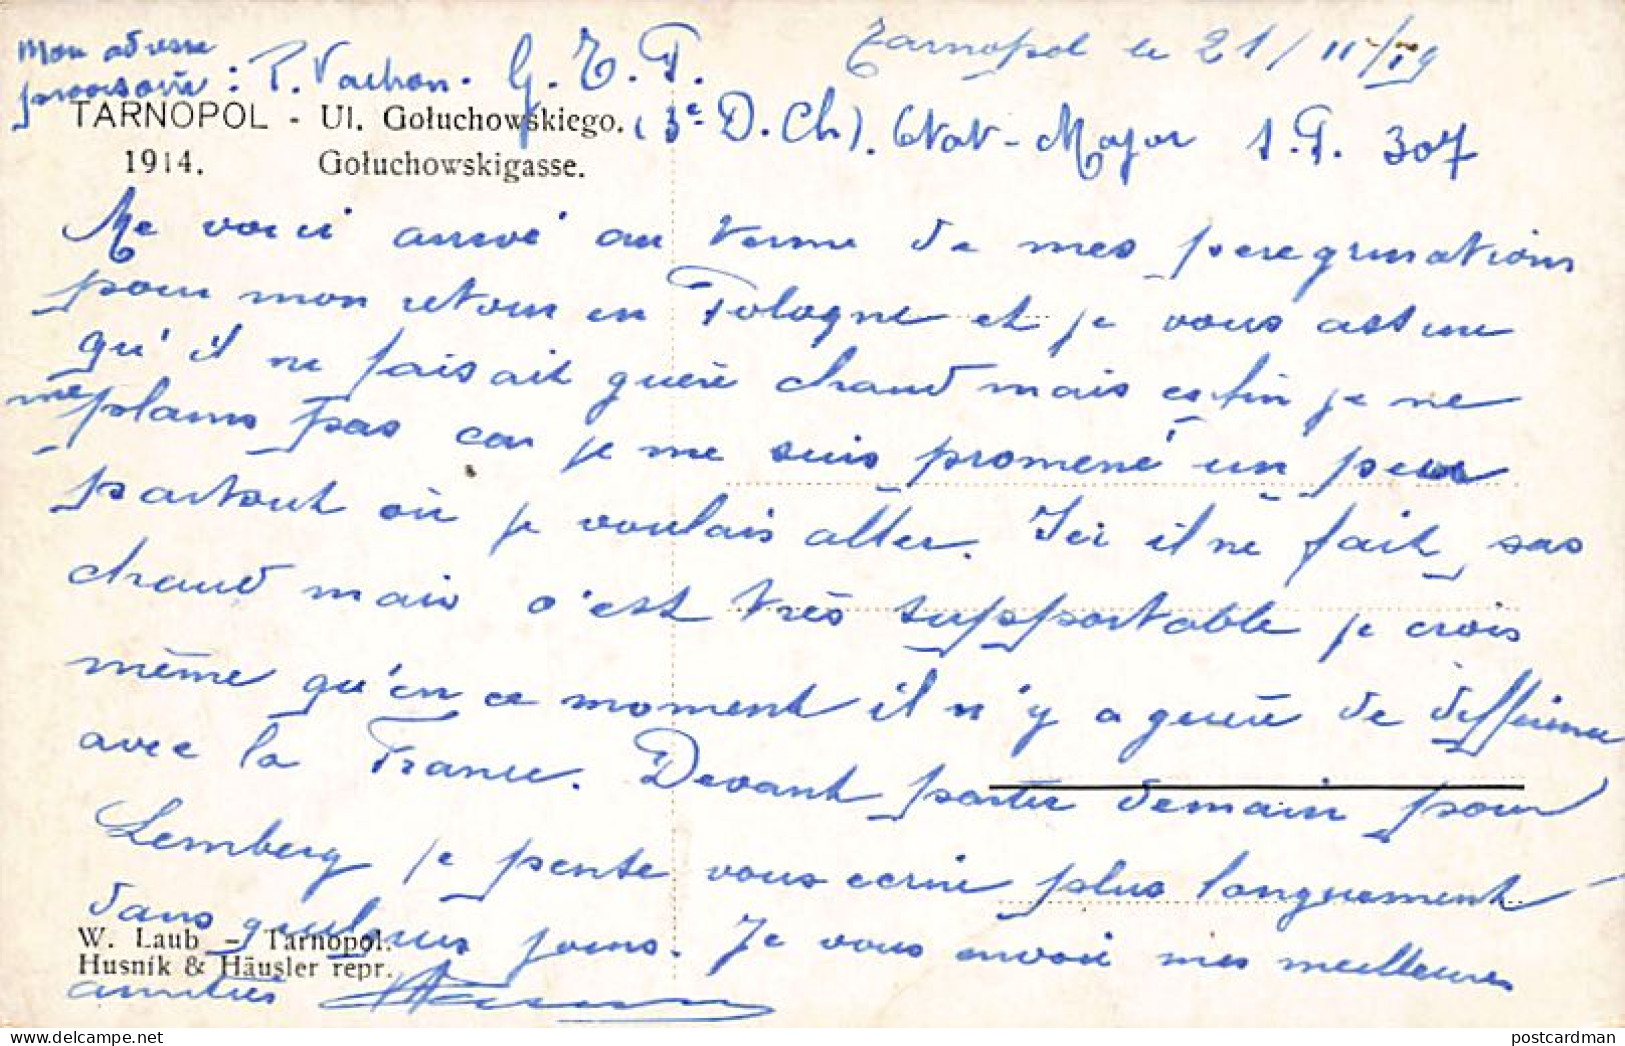 Tarnopol le 21/11/19
Mon adresse
provisoire : P. Vachon. G. T. P.
TARNOPOL - Ul. Gołuchowskiego. (3e D. Ch). Etat-Major S. P. 307
1914. Gołuchowskigasse.
Me voici arrivé au terme de mes peregrinations
pour mon retour en Pologne et je vous assure
qu'il ne faisait guère chaud mais enfin je ne
me plains pas car je me suis promené un peu
partout où je voulais aller. Ici il ne fait pas
chaud mais c'est très supportable je crois
même qu'en ce moment il n'y a guère de difference
avec la France. Devant partir demain pour
Lemberg je pense vous ecrire plus longuement
dans quelques jours. Je vous envoie mes meilleures
amitiés
W. Laub - Tarnopol.
Husnik & Häusler repr.
https://www.delcampe.net
postcardman